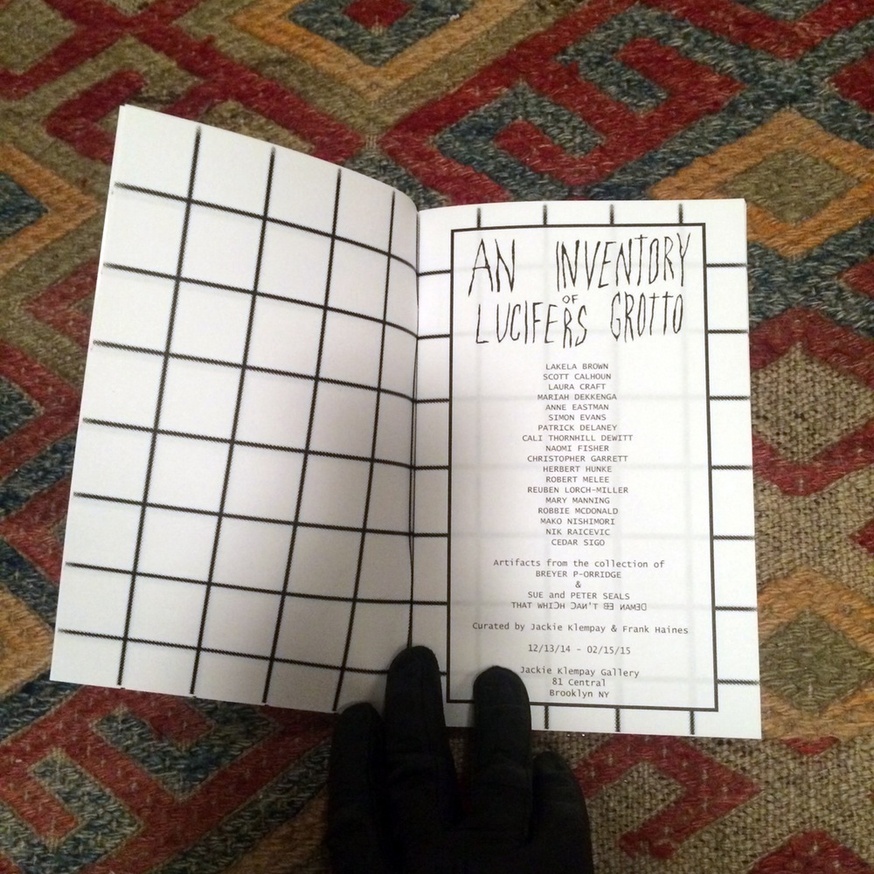 AN INVENTORY
OF
LUCIFERS GROTTO
LAKELA BROWN
SCOTT CALHOUN
LAURA CRAFT
MARIAH DEKKENGA
ANNE EASTMAN
SIMON EVANS
PATRICK DELANEY
CALI THORNHILL DEWITT
NAOMI FISHER
CHRISTOPHER GARRETT
HERBERT HUNKE
ROBERT MELEE
REUBEN LORCH-MILLER
MARY MANNING
ROBBIE MCDONALD
MAKO NISHIMORI
NIK RAICEVIC
CEDAR SIGO
Artifacts from the collection of
BREYER P-ORRIDGE
&
SUE and PETER SEALS
THAT WHICH CAN'T BE NAMED
Curated by Jackie Klempay & Frank Haines
12/13/14 - 02/15/15
Jackie Klempay Gallery
81 Central
Brooklyn NY